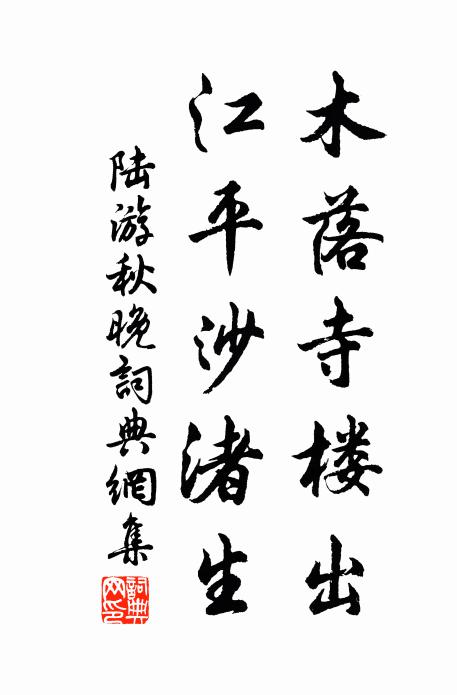 木落寺楼出
江平沙渚生
陆游秋晚詞典網集
詞典
网印